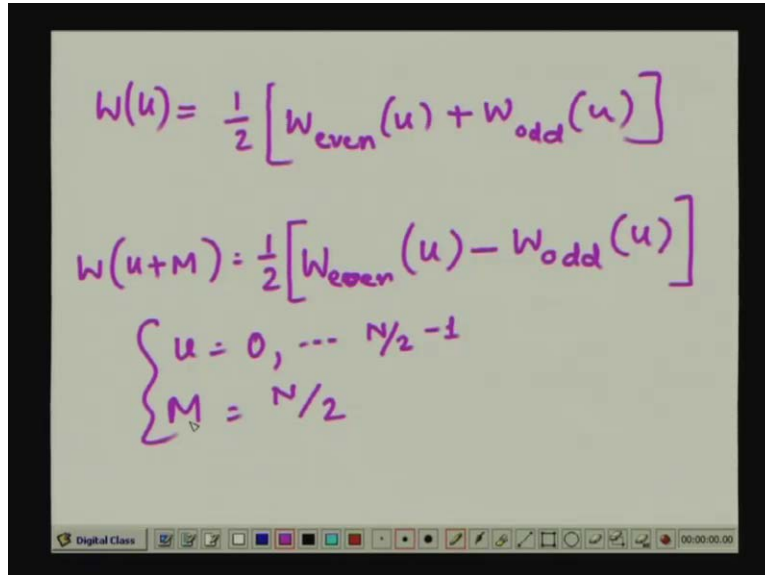 W(u) = 1/2 [W_even(u) + W_odd(u)]
W(u+M) = 1/2 [W_even(u) - W_odd(u)]
u = 0, --- N/2 -1
M = N/2
Digital Class 00:00:00.00